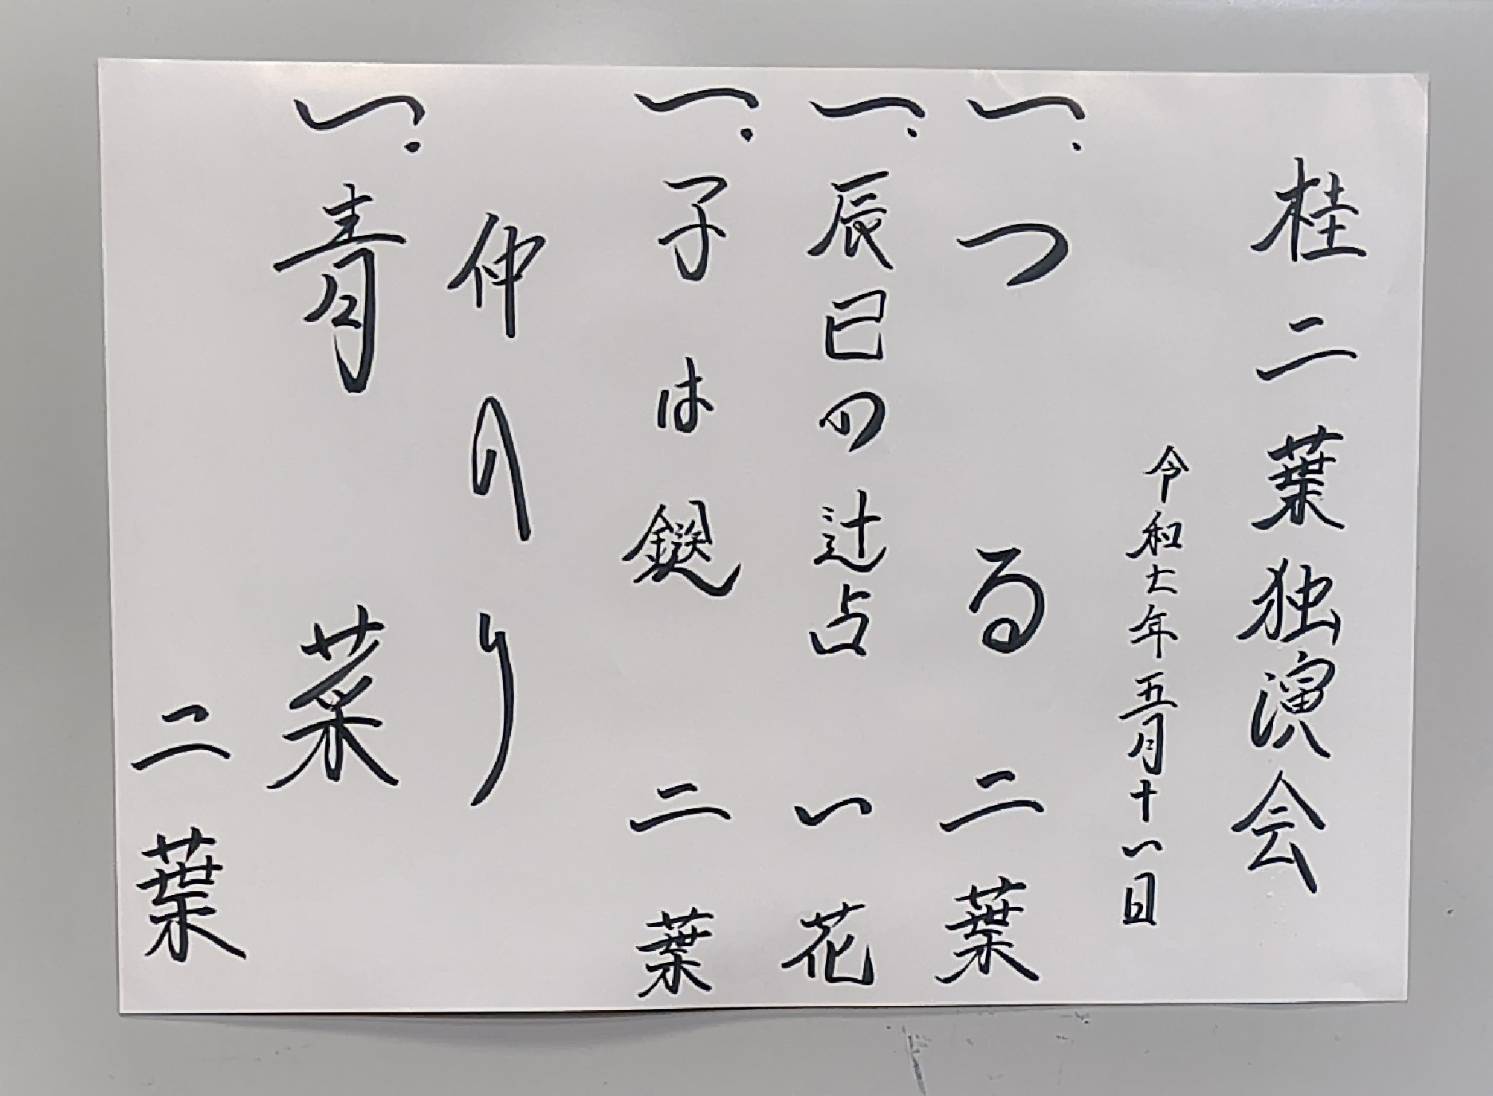 桂二葉独演会
令和七年五月十一日
一、つる 二葉
一、辰巳の辻占 い花
一、子は鎹 二葉
仲入り
一、青菜 二葉